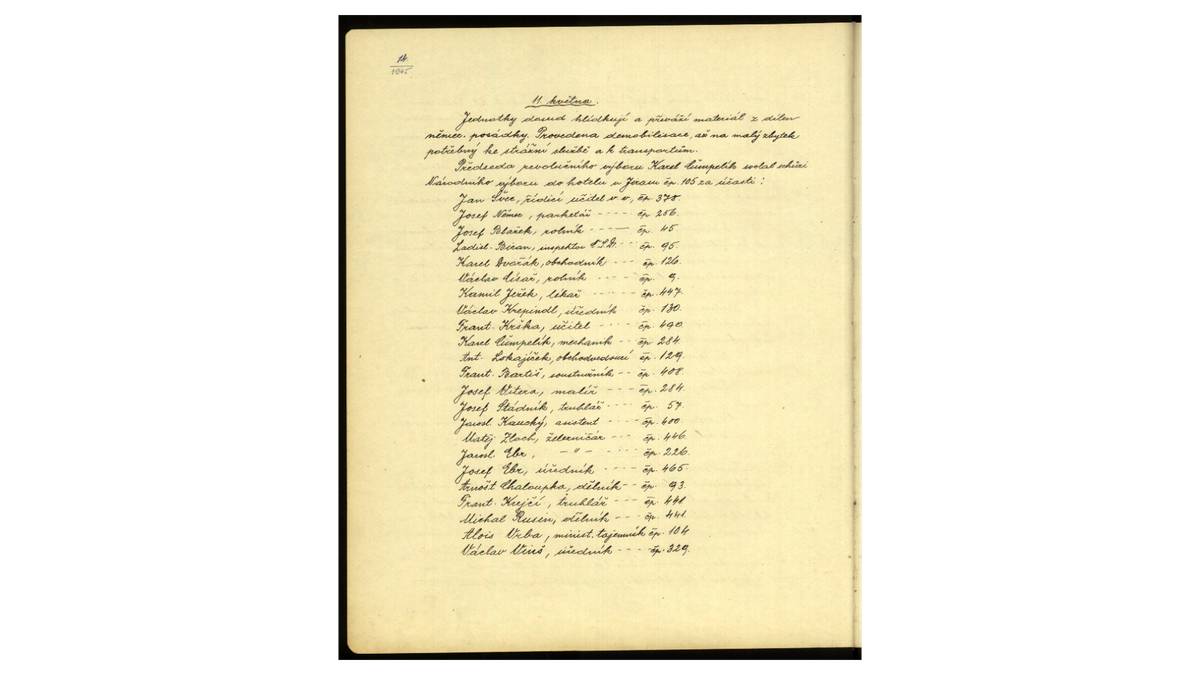 14
1945
11. května.
Jednotky dosud hlídkují a přiváží materiál z dílen
němec. posádky. Provedena demobilisace, až na malý zbytek
potřebný ke strážní službě a k transportům.
Předseda revolučního výboru Karel Cümpelík svolal schůzi
Národního výboru do hotelu u čp. 105 za účasti:
Jan Švec, řídící učitel v v, čp. 378.
Josef Němec, parketář - - - - čp. 256.
Josef Blažek, rolník - - - - čp. 45
Ladisl. inspektor čp. 95.
Karel Dvořák, obchodník - - - čp. 126.
Václav Císař, rolník - - - - čp. 9.
Kamil Ježek, lékař - - - - - čp. 447.
Václav Krepindl, úředník čp. 130.
Frant. Krška, učitel - - - - čp. 490.
Karel Cümpelík, mechanik - - čp. 284.
Ant. Lokajíček, obchodvedoucí čp. 129.
Frant. Bartiš, soustružník - - čp. 408.
Josef Vitera, malíř - - - čp. 284.
Josef Stádník, truhlář - - - - čp. 57.
Jarosl. Kaucký, asistent - - - - čp. 400
Matěj Zloch, železničář - - - čp. 446.
Jarosl. Ebr, - " - - - - čp. 226.
Josef Ebr, úředník - - - - čp. 465.
Arnošt Chaloupka, dělník - - čp. 93.
Frant. Krejčí, truhlář - - - čp. 441
Michal Rusin, dělník - - - čp. 441.
Alois Vrba, minist. tajemník čp. 104
Václav úředník - - - - čp. 329.